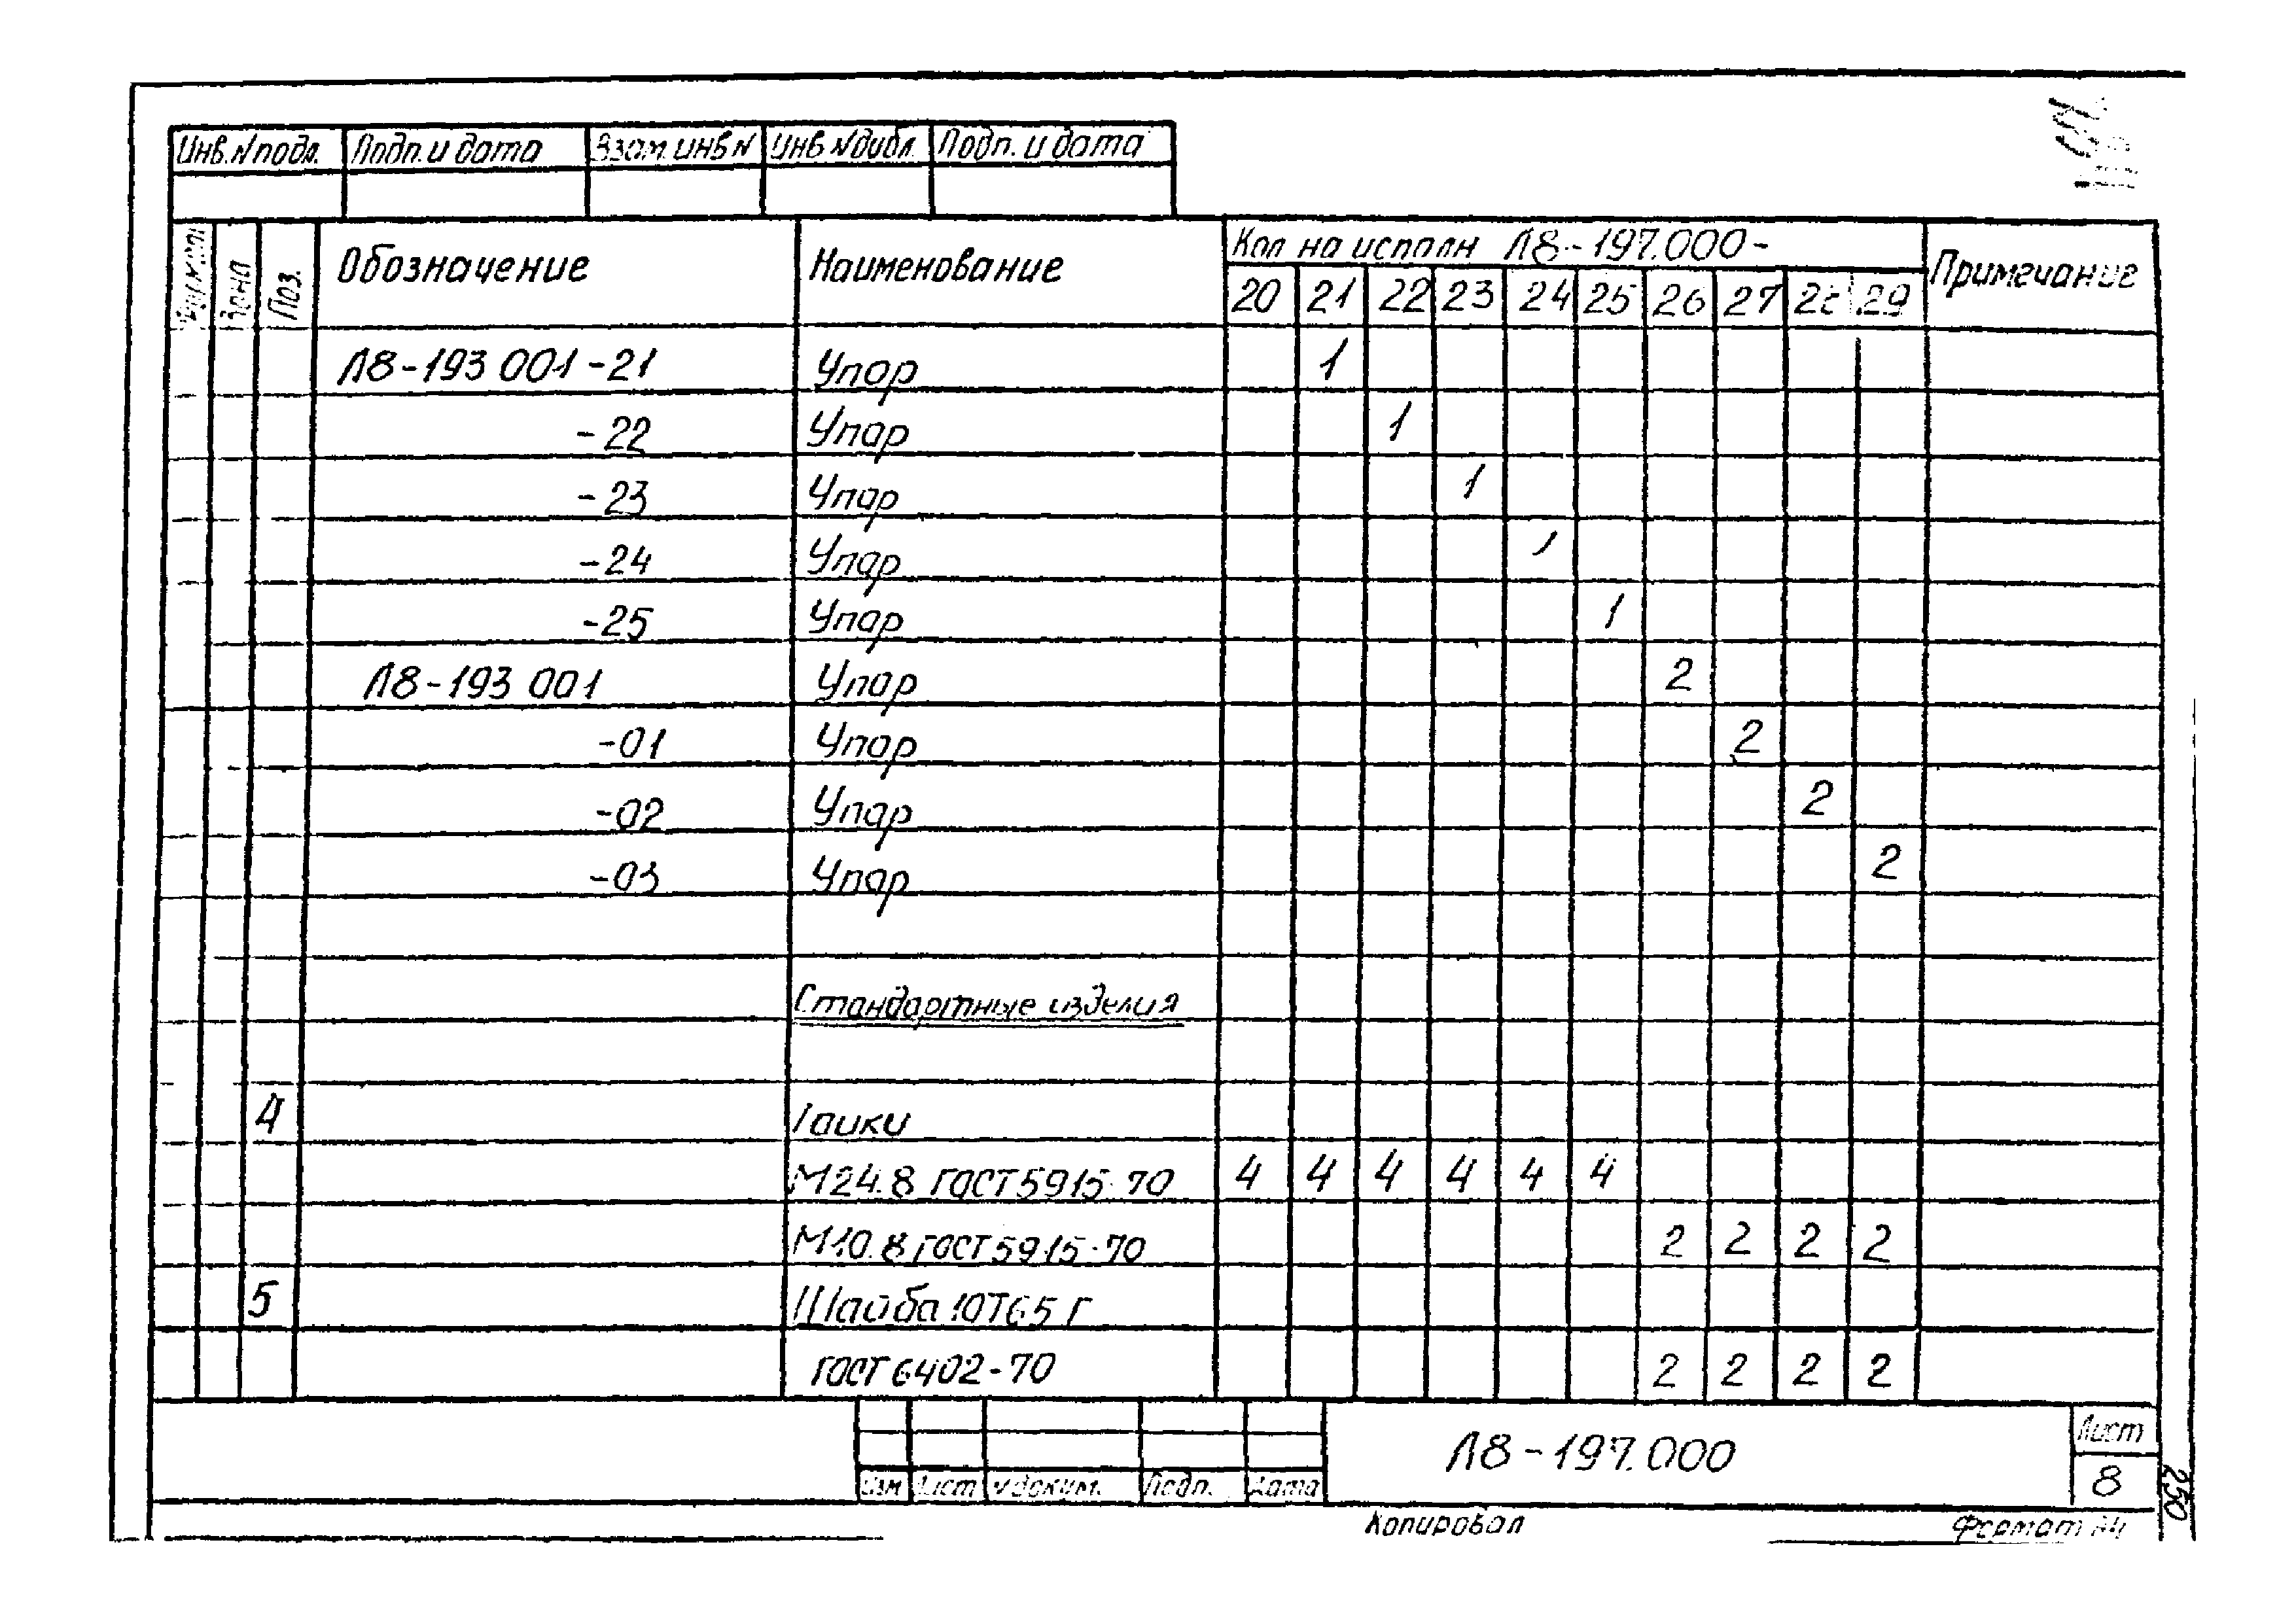 Инв.N подл. Подп. и дата Взам. инв N Инв N дубл. Подп. и дата
Зона Поз. Обозначение Наименование Кол на исполн Л8-197.000- Примечание
20 21 22 23 24 25 26 27 28 29
Л8-193 001-21 Упор 1
-22 Упор 1
-23 Упор 1
-24 Упор 1
-25 Упор 1
Л8-193 001 Упор 2
-01 Упор 2
-02 Упор 2
-03 Упор 2
Стандартные изделия
4 Гайки
М24.8 ГОСТ 5915-70 4 4 4 4 4 4
М10.8 ГОСТ 5915-70 2 2 2 2
5 Шайба 10Т65Г
ГОСТ 6402-70 2 2 2 2
Л8-197.000 Лист
Изм Лист N докум. Подп. Дата 8
Копировал Формат А4
250